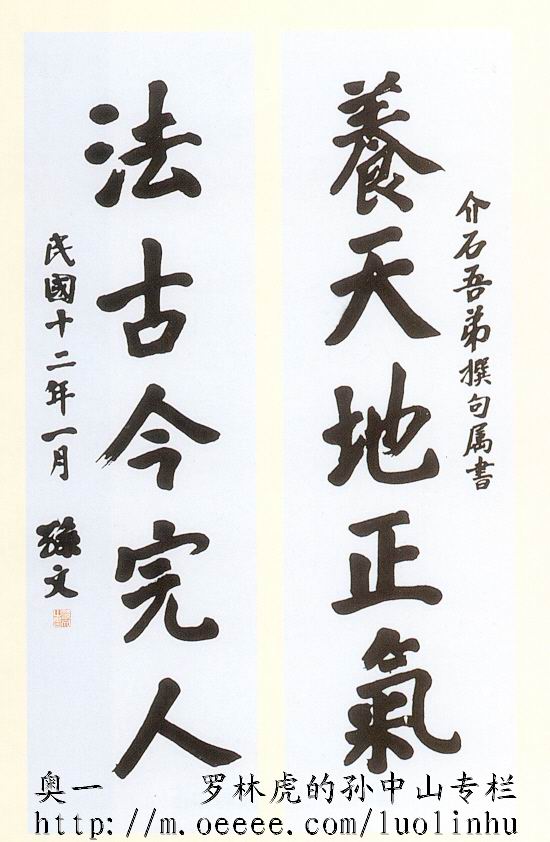 介石吾弟撰句属書
養天地正氣
法古今完人
民國十二年一月
孫文
奥一 罗林虎的孙中山专栏
http://m.oeeee.com/luolinhu